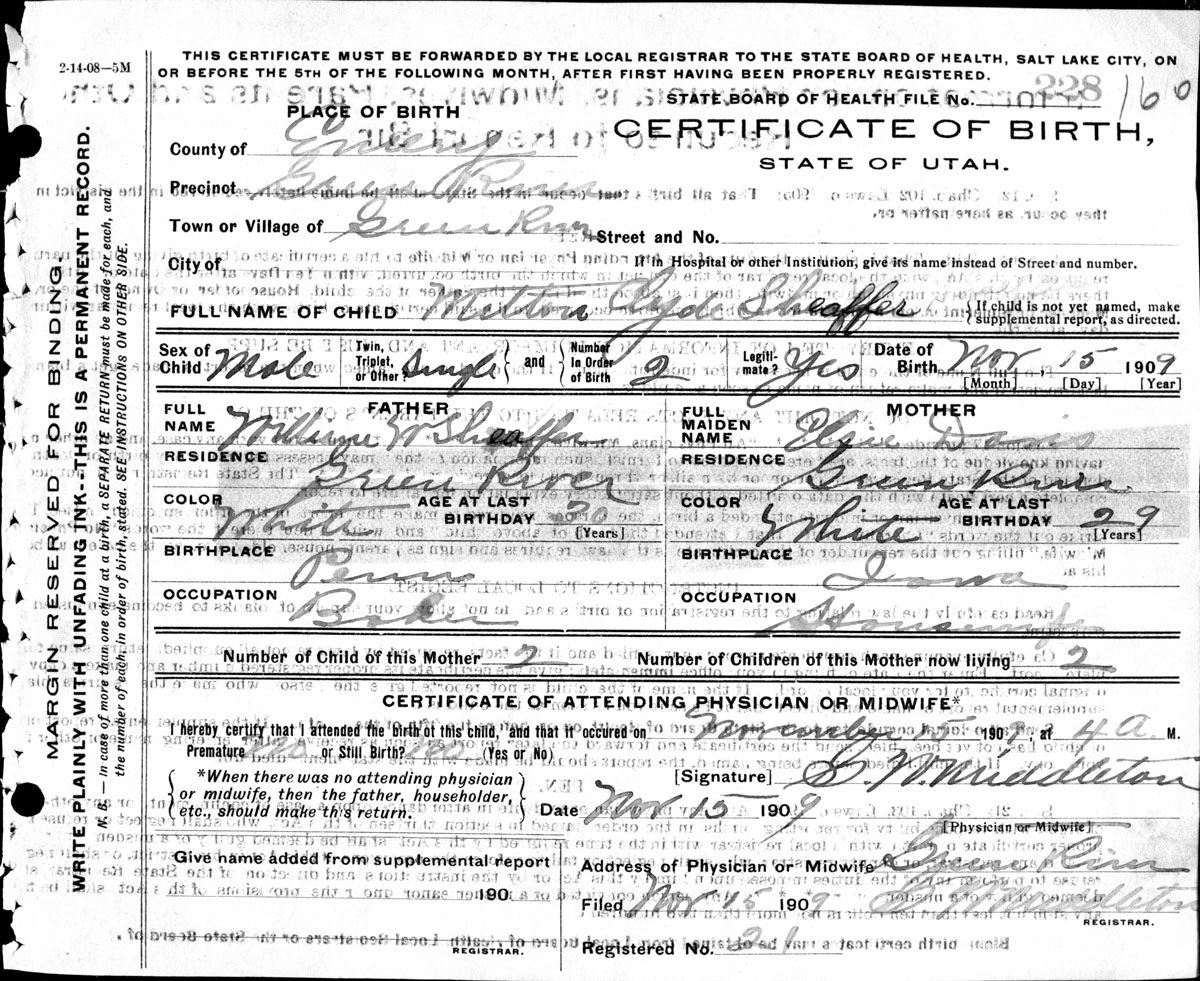 2-14-08—5M
THIS CERTIFICATE MUST BE FORWARDED BY THE LOCAL REGISTRAR TO THE STATE BOARD OF HEALTH, SALT LAKE CITY, ON
OR BEFORE THE 5TH OF THE FOLLOWING MONTH, AFTER FIRST HAVING BEEN PROPERLY REGISTERED.
STATE BOARD OF HEALTH FILE No. 228 160
PLACE OF BIRTH
CERTIFICATE OF BIRTH,
STATE OF UTAH.
County of Emery
Precinct Green River
Town or Village of Green River Street and No.
City of If in Hospital or other Institution, give its name instead of Street and number.
FULL NAME OF CHILD Milton Clyde Sheaffer {If child is not yet named, make
supplemental report, as directed.
Sex of Child Male Twin, Triplet, or Other? Single and Number in Order of Birth 2 Legitimate? Yes Date of Birth Nov. 15 1909
[Month] [Day] [Year]
FATHER
FULL NAME William W Sheaffer
RESIDENCE Green River
COLOR White AGE AT LAST BIRTHDAY 30 [Years]
BIRTHPLACE Penn
OCCUPATION Baker
MOTHER
FULL MAIDEN NAME Elsie Davis
RESIDENCE Green River.
COLOR White AGE AT LAST BIRTHDAY 29 [Years]
BIRTHPLACE Iowa
OCCUPATION Housewife
Number of Child of this Mother 2 Number of Children of this Mother now living 2
CERTIFICATE OF ATTENDING PHYSICIAN OR MIDWIFE*
I hereby certify that I attended the birth of this child, and that it occured on November 15 1909, at 4 A. M.
Premature no or Still Birth? no (Yes or No)
*When there was no attending physician
or midwife, then the father, householder,
etc., should make this return.
[Signature] C. W. Middleton
Date Nov 15 1909
[Physician or Midwife]
Give name added from supplemental report
190
REGISTRAR.
Address of Physician or Midwife Green River
Filed Nov 15 1909 C W Middleton
REGISTRAR.
Registered No. 21
MARGIN RESERVED FOR BINDING.
WRITE PLAINLY WITH UNFADING INK--THIS IS A PERMANENT RECORD.
N. B. — In case of more than one child at a birth, a SEPARATE RETURN must be made for each, and
the number of each, in order of birth, stated. SEE INSTRUCTIONS ON OTHER SIDE.